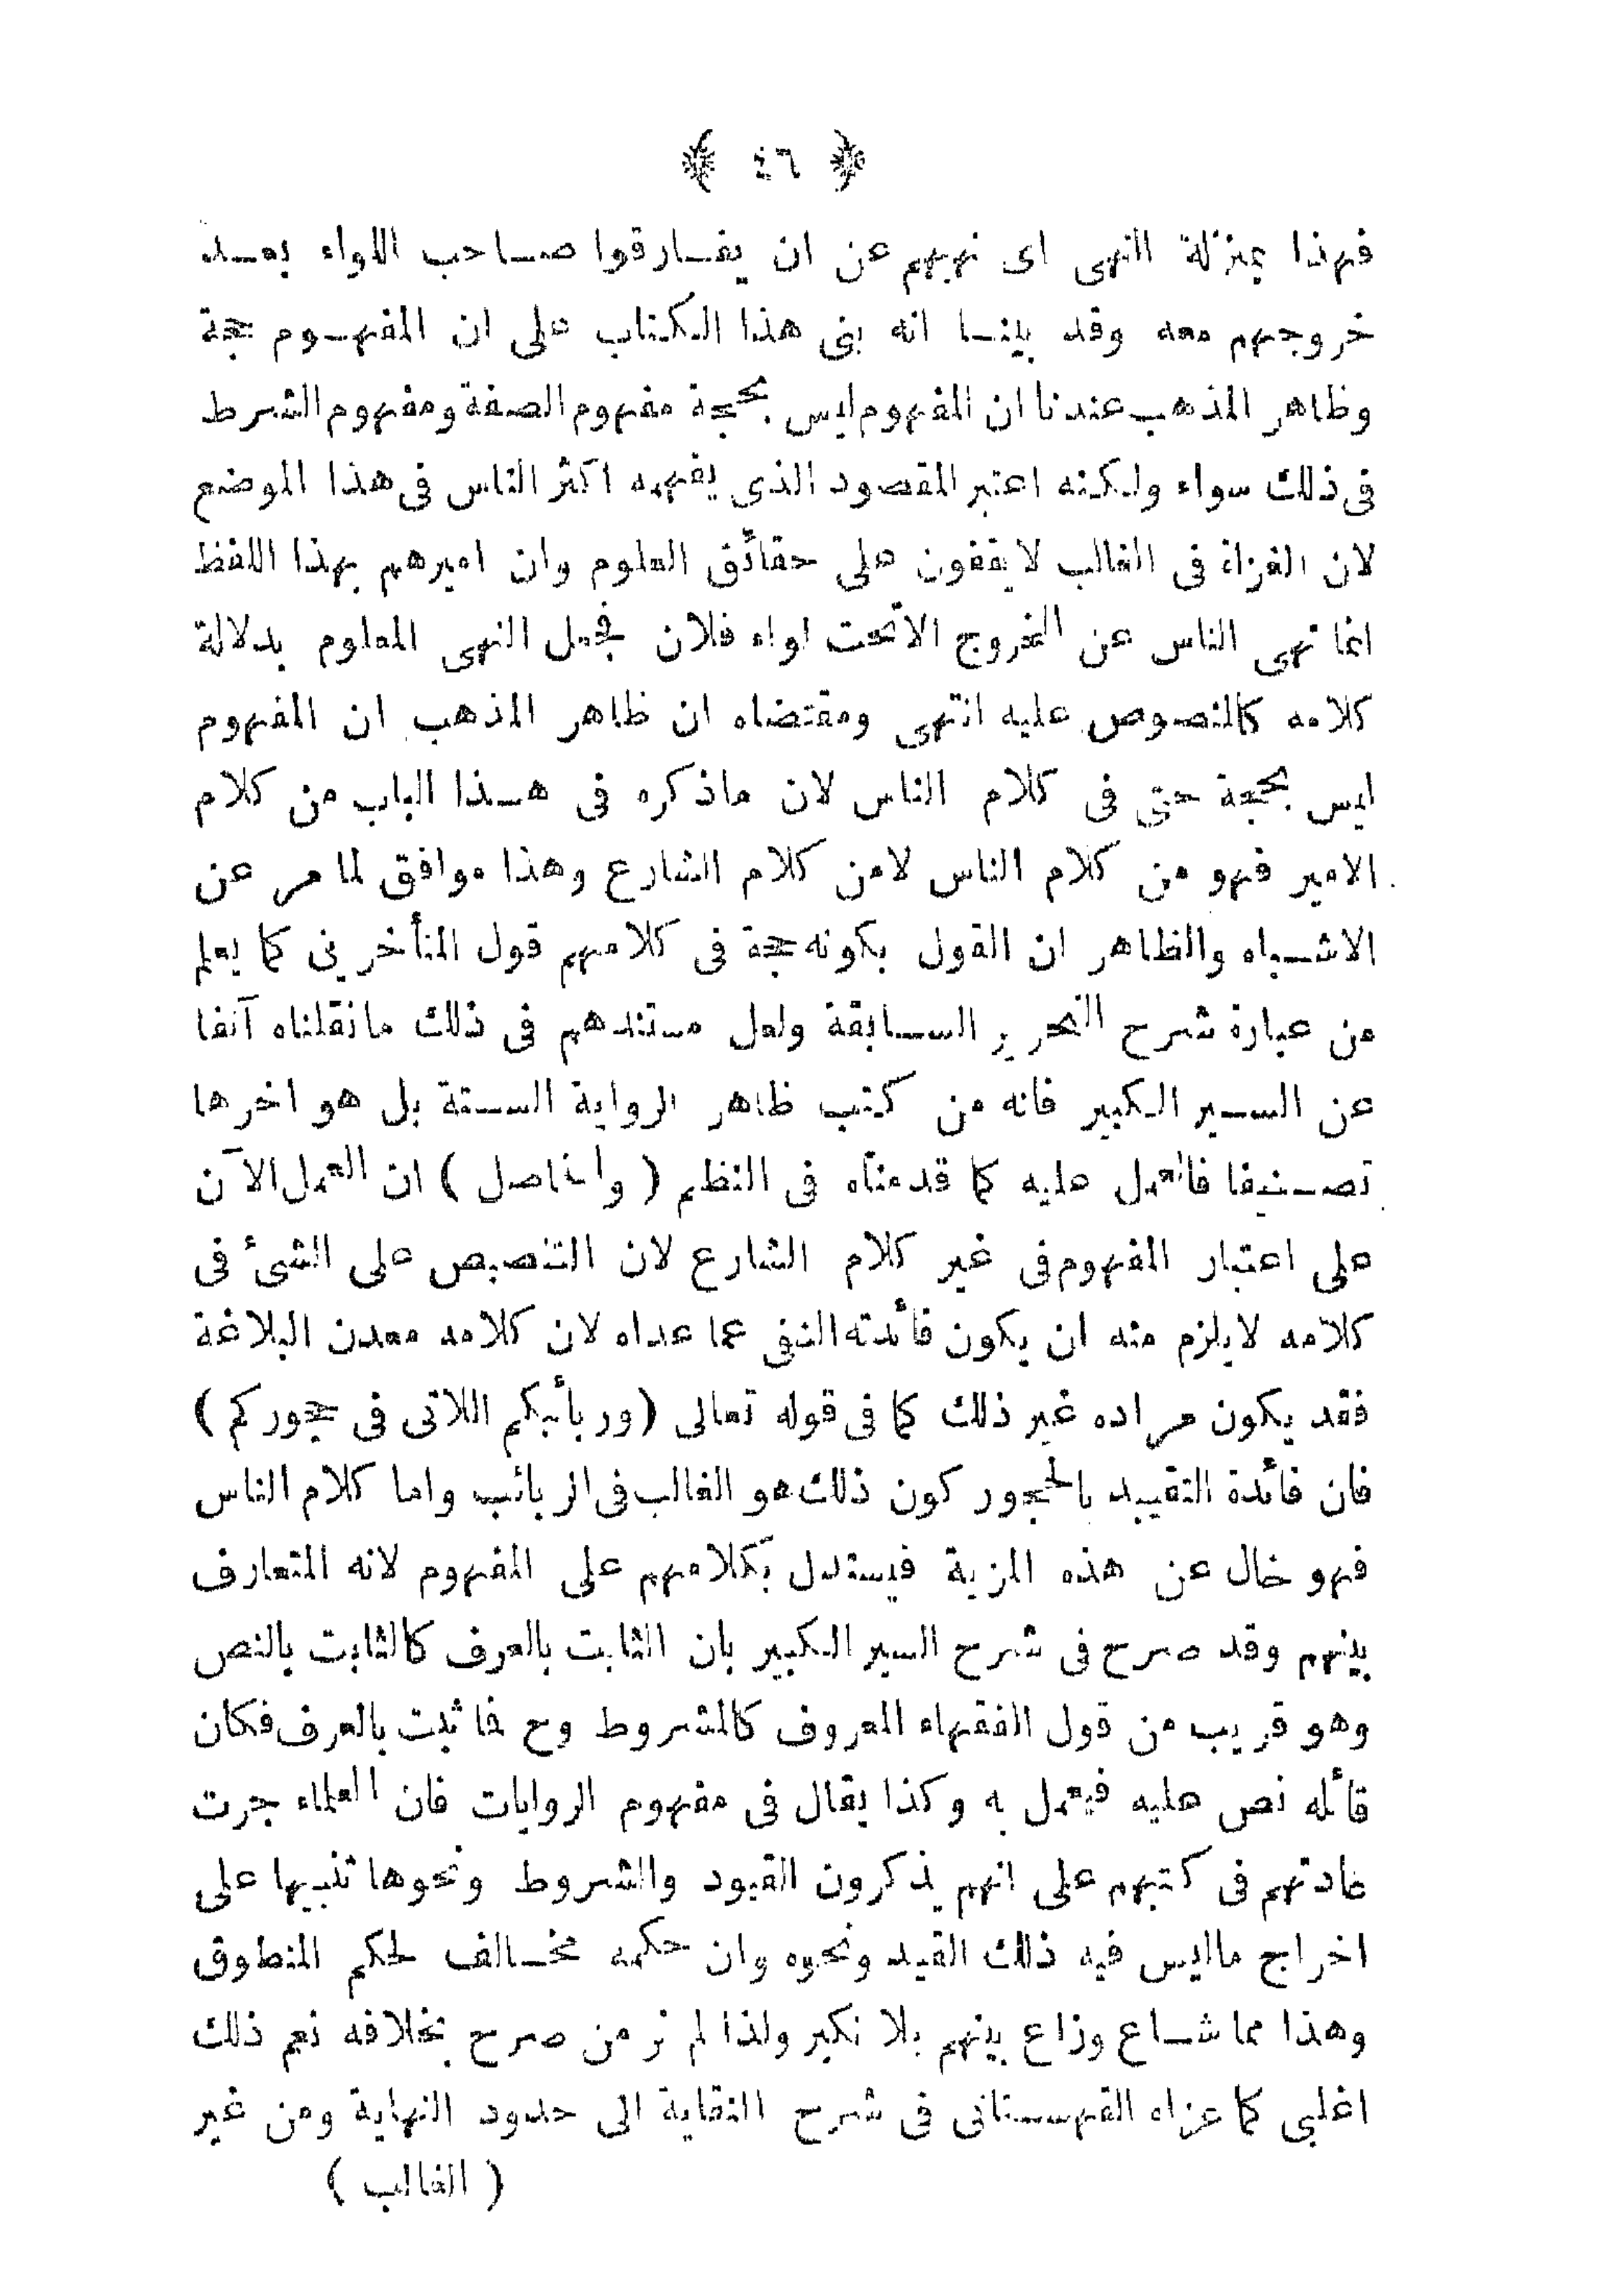 ﴿ ٤٦ ﴾
فهذا بمنزلة النهى اى نهيهم عن ان يفارقوا صاحب اللواء بعد
خروجهم معه وقد بينا انه بنى هذا الكتاب على ان المفهوم حجة
وظاهر المذهب عندنا ان المفهوم ليس بحجة مفهوم الصفة ومفهوم الشرط
فى ذلك سواء ولكنه اعتبر المقصود الذى يفهمه اكثر الناس فى هذا الموضع
لان الغزاة فى الغالب لا يقفون على حقائق العلوم وان اميرهم بهذا اللفظ
انما نهى الناس عن الخروج الا تحت لواء فلان فجعل النهى المعلوم بدلالة
كلامه كالمنصوص عليه انتهى ومقتضاه ان ظاهر المذهب ان المفهوم
ليس بحجة حتى فى كلام الناس لان ماذكره فى هذا الباب من كلام
الامير فهو من كلام الناس لامن كلام الشارع وهذا موافق لما مر عن
الاشباه والظاهر ان القول بكونه حجة فى كلامهم قول المتأخرين كما يعلم
من عبارة شرح التحرير السابقة ولعل مستندهم فى ذلك مانقلناه آنفا
عن السير الكبير فانه من كتب ظاهر الرواية الستة بل هو اخرها
تصنيفا فالعمل عليه كما قدمناه فى النظم ( والحاصل ) ان العمل الآن
على اعتبار المفهوم فى غير كلام الشارع لان التنصيص على الشئ فى
كلامه لا يلزم منه ان يكون فائدته النفى عما عداه لان كلامه معدن البلاغة
فقد يكون مراده غير ذلك كما فى قوله تعالى ( وربائبكم اللاتى فى حجوركم )
فان فائدة التقييد بالحجور كون ذلك هو الغالب فى الربائب واما كلام الناس
فهو خال عن هذه المزية فيستدل بكلامهم على المفهوم لانه المتعارف
بينهم وقد صرح فى شرح السير الكبير بان الثابت بالعرف كالثابت بالنص
وهو قريب من قول الفقهاء المعروف كالمشروط وح فما ثبت بالعرف فكان
قائله نص عليه فيعمل به وكذا يقال فى مفهوم الروايات فان العلماء جرت
عادتهم فى كتبهم على انهم يذكرون القيود والشروط ونحوها تنبيها على
اخراج ماليس فيه ذلك القيد ونحوه وان حكمه مخالف لحكم المنطوق
وهذا مما شاع وزاع بينهم بلا نكير ولذا لم نر من صرح بخلافه نعم ذلك
اغلبى كما عزاه القهستانى فى شرح النقاية الى حدود النهاية ومن غير
( الغالب )